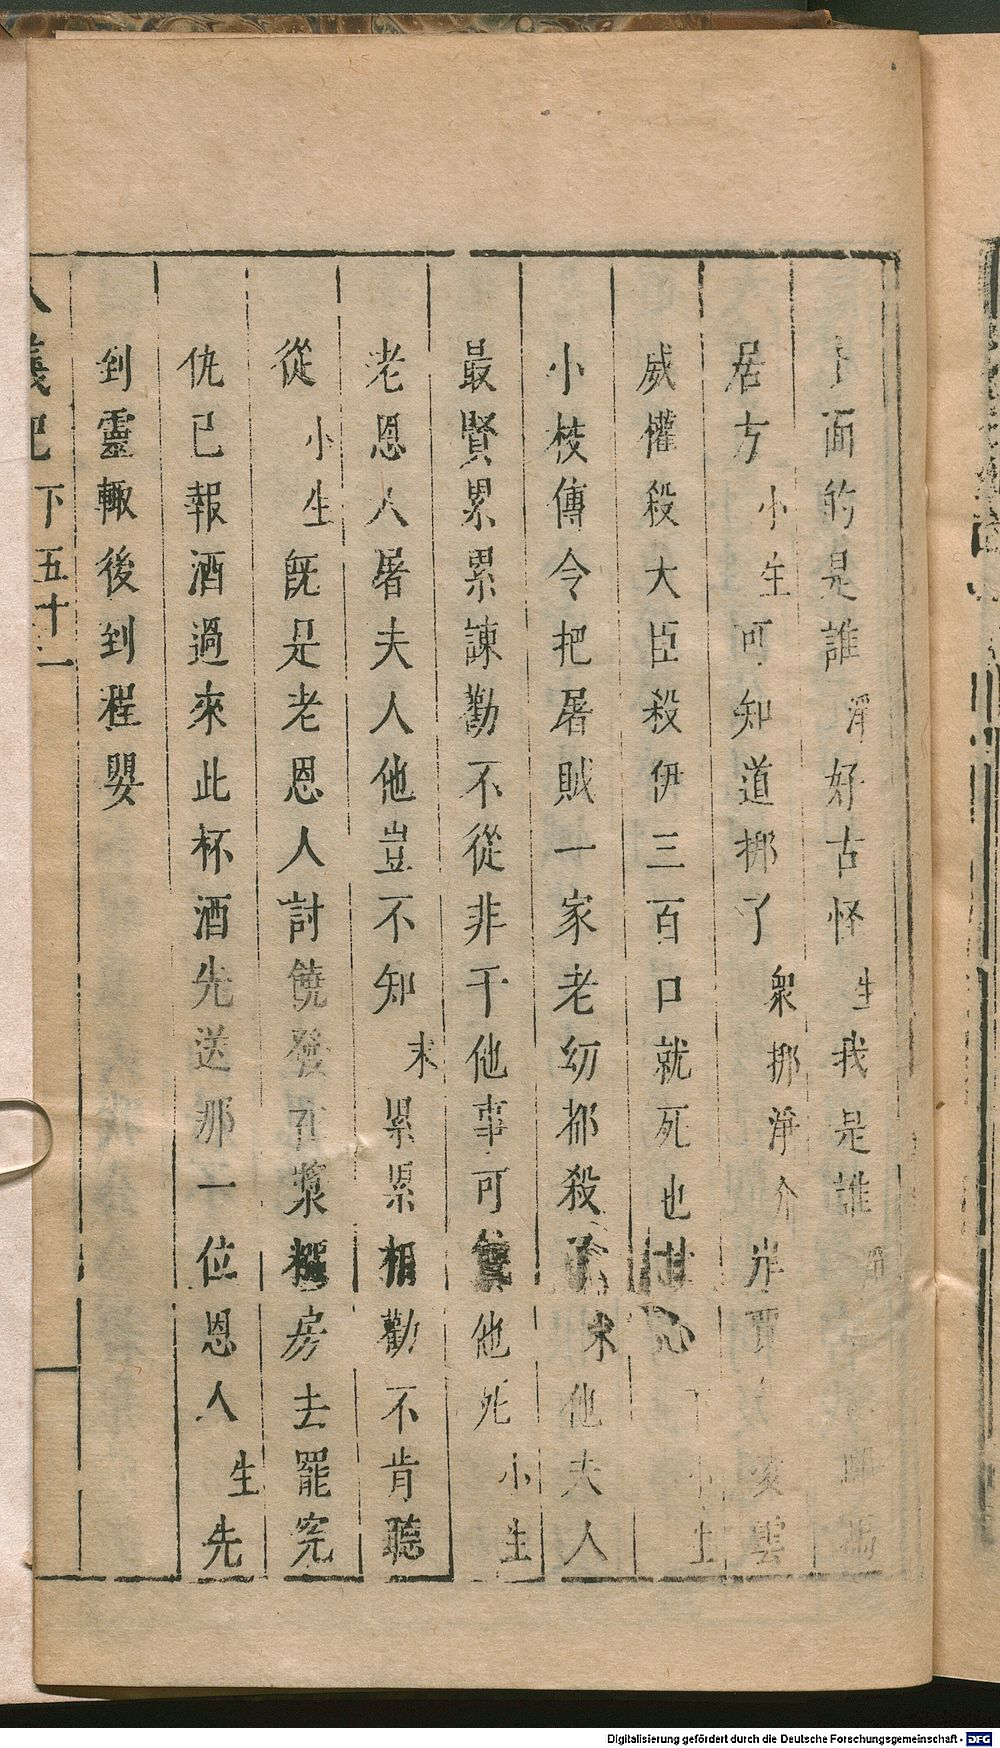 面的是誰 淨 好古怪 生 我是誰
居方 小生 可知道揶了 衆揶淨介
威權殺大臣殺伊三百口就死也甘心
小校傳令把屠賊一家老幼都殺了 末 他夫人
最賢累累諫勸不從非干他事可饒他死 小生
老恩人屠夫人他豈不知 末 累累相勸不肯聽
從 小生 既是老恩人討饒發在漿糨房去罷寃
仇已報酒過來此杯酒先送那一位恩人 生 先
到靈輙後到程嬰
八義記 下 五十一
Digitalisierung gefördert durch die Deutsche Forschungsgemeinschaft - DFG